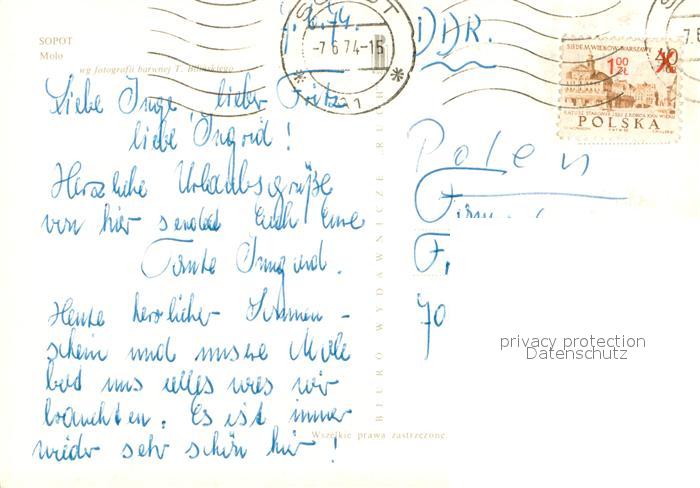 SOPOT
Molo
wg fotografii barwnej T. Bilińskiego
7.6.74.
SOPOT 1
-7 6 74-15
DDR.
SIEDEM WIEKÓW WARSZAWY
1 00 ZŁ
40 GR
POLSKA
Liebe Inge lieber Fritz
liebe Ingrid!
Herzliche Urlaubsgrüße
von hier sendet Euch Eure
Tante Irmgard.
Heute herrlicher Sonnen-
schein und unsere Mole
bot uns alles was wir
brauchten. Es ist immer
wieder sehr schön hier!
BIURO WYDAWNICZE RUCH
Wszelkie prawa zastrzeżone
Polen
F.
70
privacy protection
Datenschutz